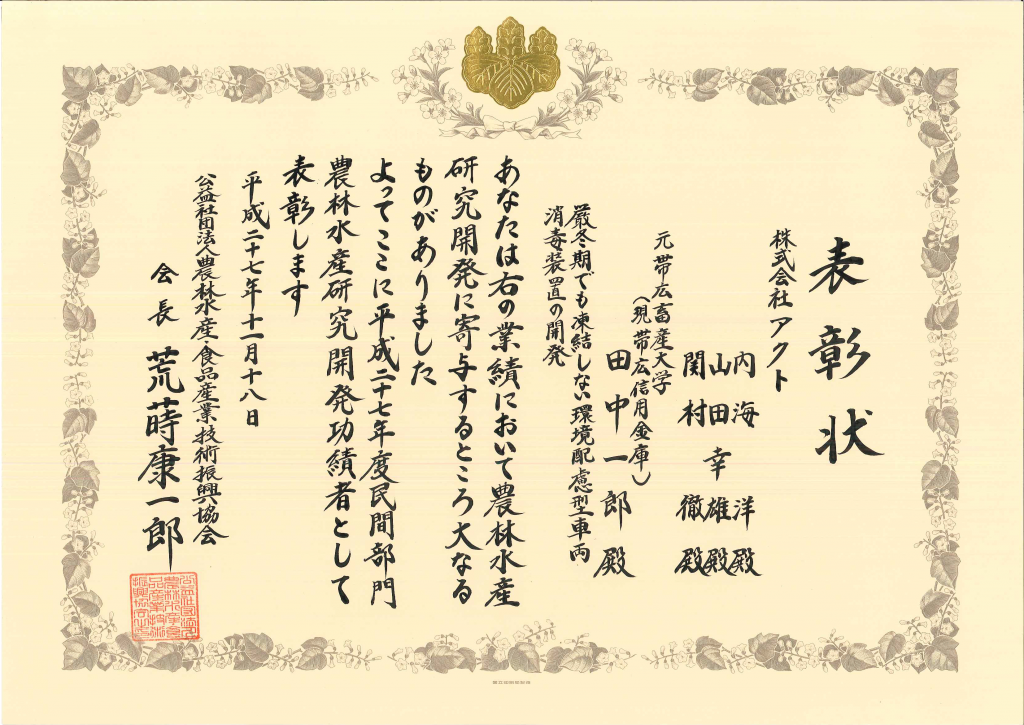 表彰状
株式会社アクト
内海洋殿
山田幸雄殿
関村徹殿
元帯広畜産大学
（現帯広信用金庫）
田中一郎殿
厳冬期でも凍結しない環境配慮型車両
消毒装置の開発
あなたは右の業績において農林水産
研究開発に寄与するところ大なる
ものがありました
よってここに平成二十七年度民間部門
農林水産研究開発功績者として
表彰します
平成二十七年十一月十八日
公益社団法人農林水産・食品産業技術振興協会
会長 荒蒔康一郎